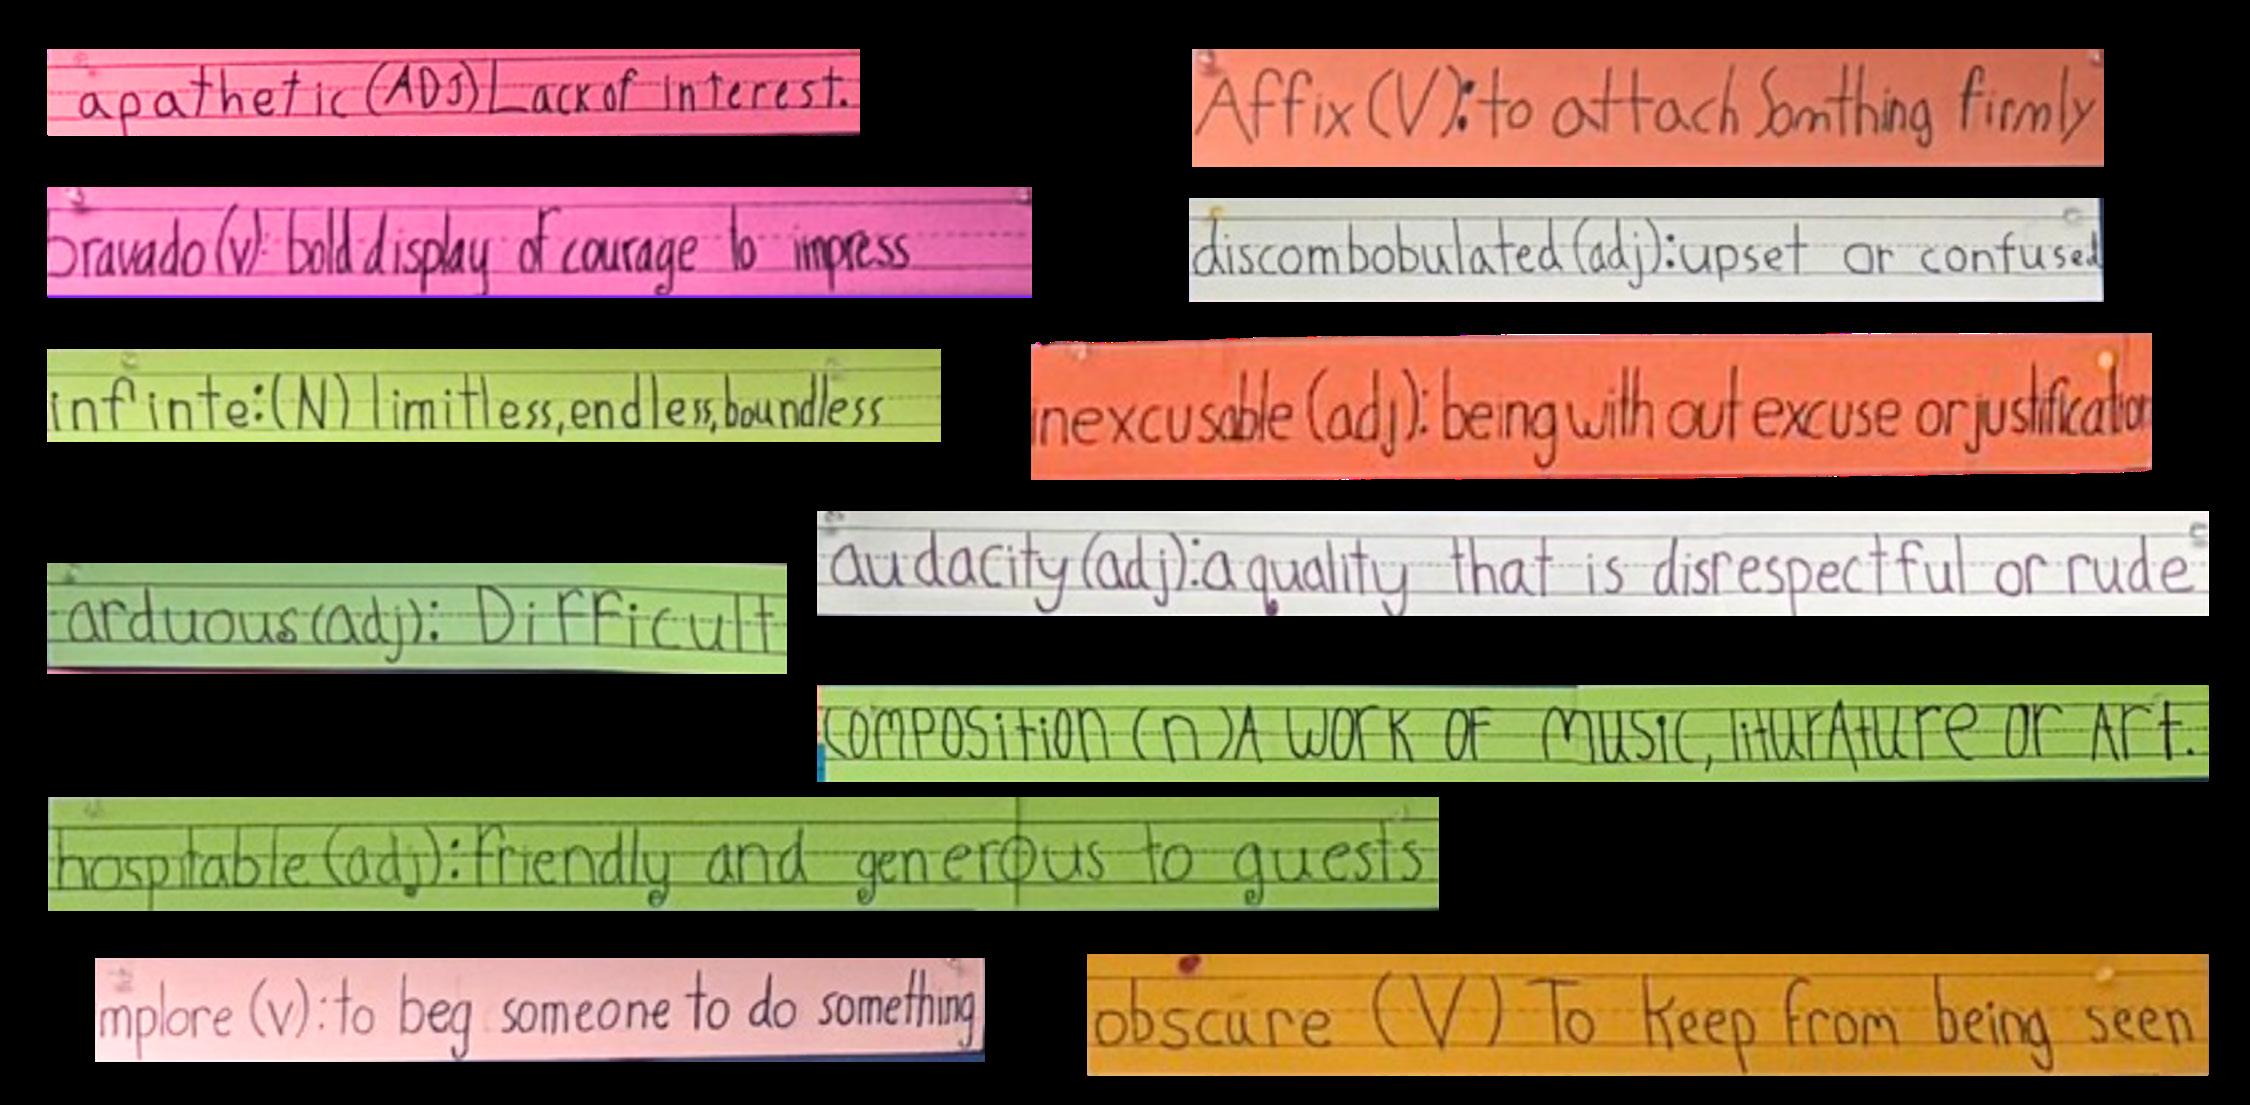 apathetic (ADJ) Lack of interest.
Affix (V): to attach Somthing firmly
bravado (v): bold display of courage to impress
discombobulated (adj): upset or confused
infinte: (N) limitless, endless, boundless
inexcusable (adj): being with out excuse or justification
audacity (adj): a quality that is disrespectful or rude
arduous (adj): Difficult
composition (n) A work of music, liturAture or Art.
hospitable (adj): friendly and generous to guests
mplore (v): to beg someone to do something
obscure (V) To keep from being seen